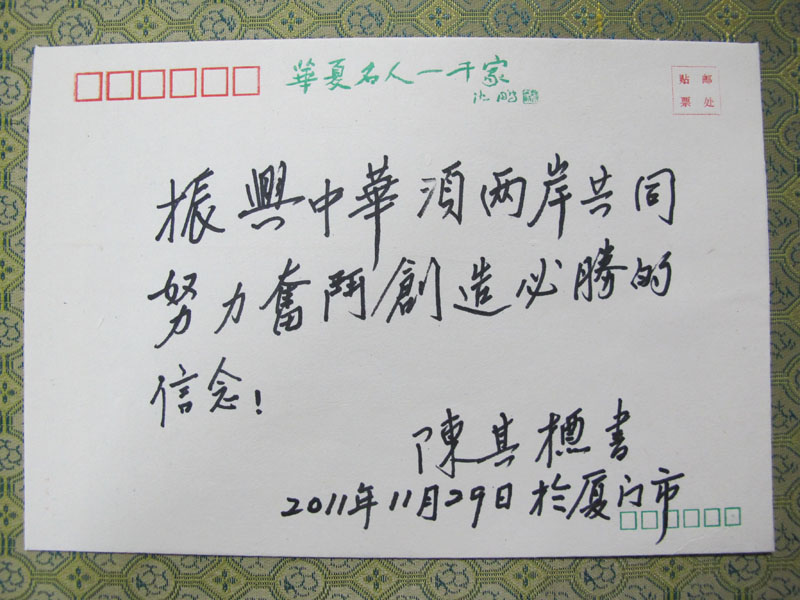 華夏名人一千家
沈鹏
贴邮
票处
振興中華須两岸共同
努力奮鬥創造必勝的
信念!
陳其標書
2011年11月29日於厦门市